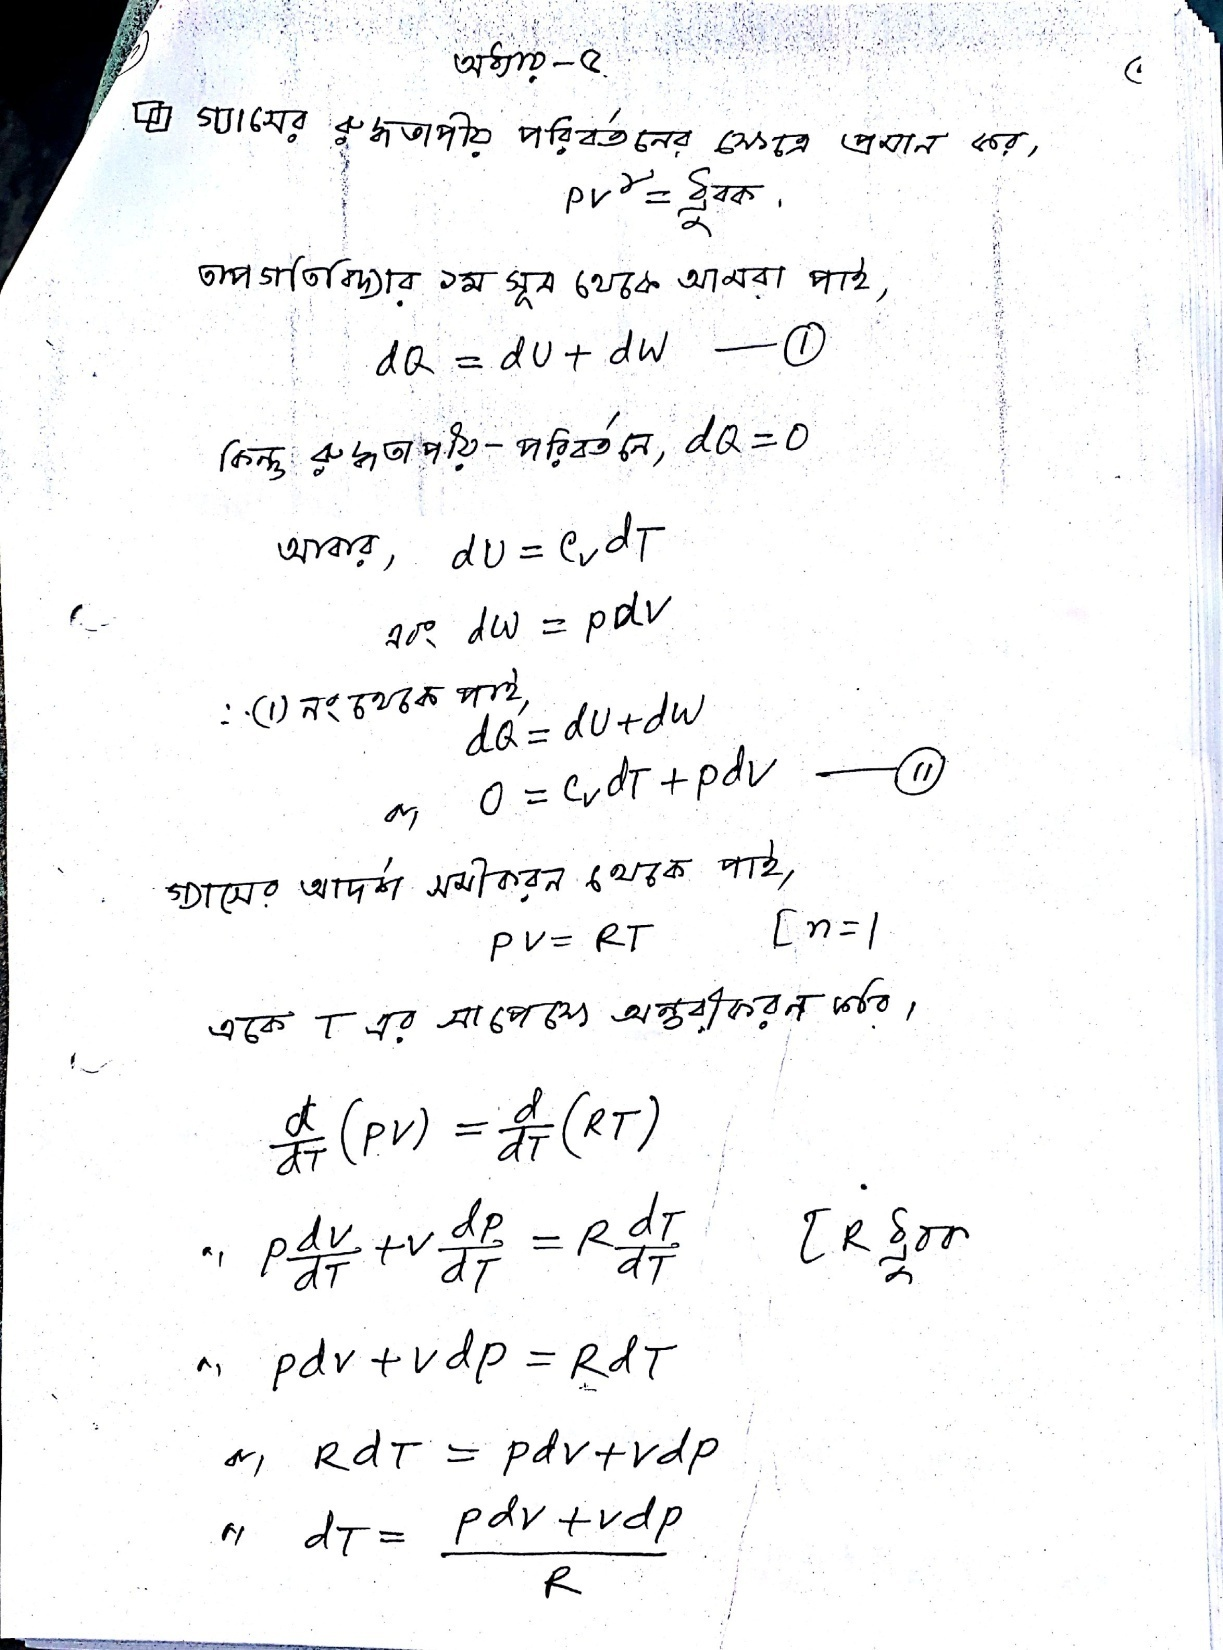 অধ্যায়-৫
গ্যাসের রুদ্ধতাপীয় পরিবর্তনের ক্ষেত্রে প্রমান কর,
PV^γ = ধ্রুবক.
তাপগতিবিদ্যার ১ম সূত্র থেকে আমরা পাই,
dQ = dU + dW — ①
কিন্তু রুদ্ধতাপীয়- পরিবর্তনে, dQ = 0
আবার, dU = CvdT
এবং dW = pdv
∴ (1) নং থেকে পাই,
dQ = dU + dW
বা, 0 = CvdT + pdv — ⑪
গ্যাসের আদর্শ সমীকরন থেকে পাই,
PV = RT [n=1
একে T এর সাপেক্ষে অন্তরীকরন করি,
d/dT (PV) = d/dT (RT)
বা, P dv/dT + v dp/dT = R dT/dT [R ধ্রুবক
বা, pdv + vdp = RdT
বা, RdT = pdv + vdp
বা dT = pdv + vdp / R